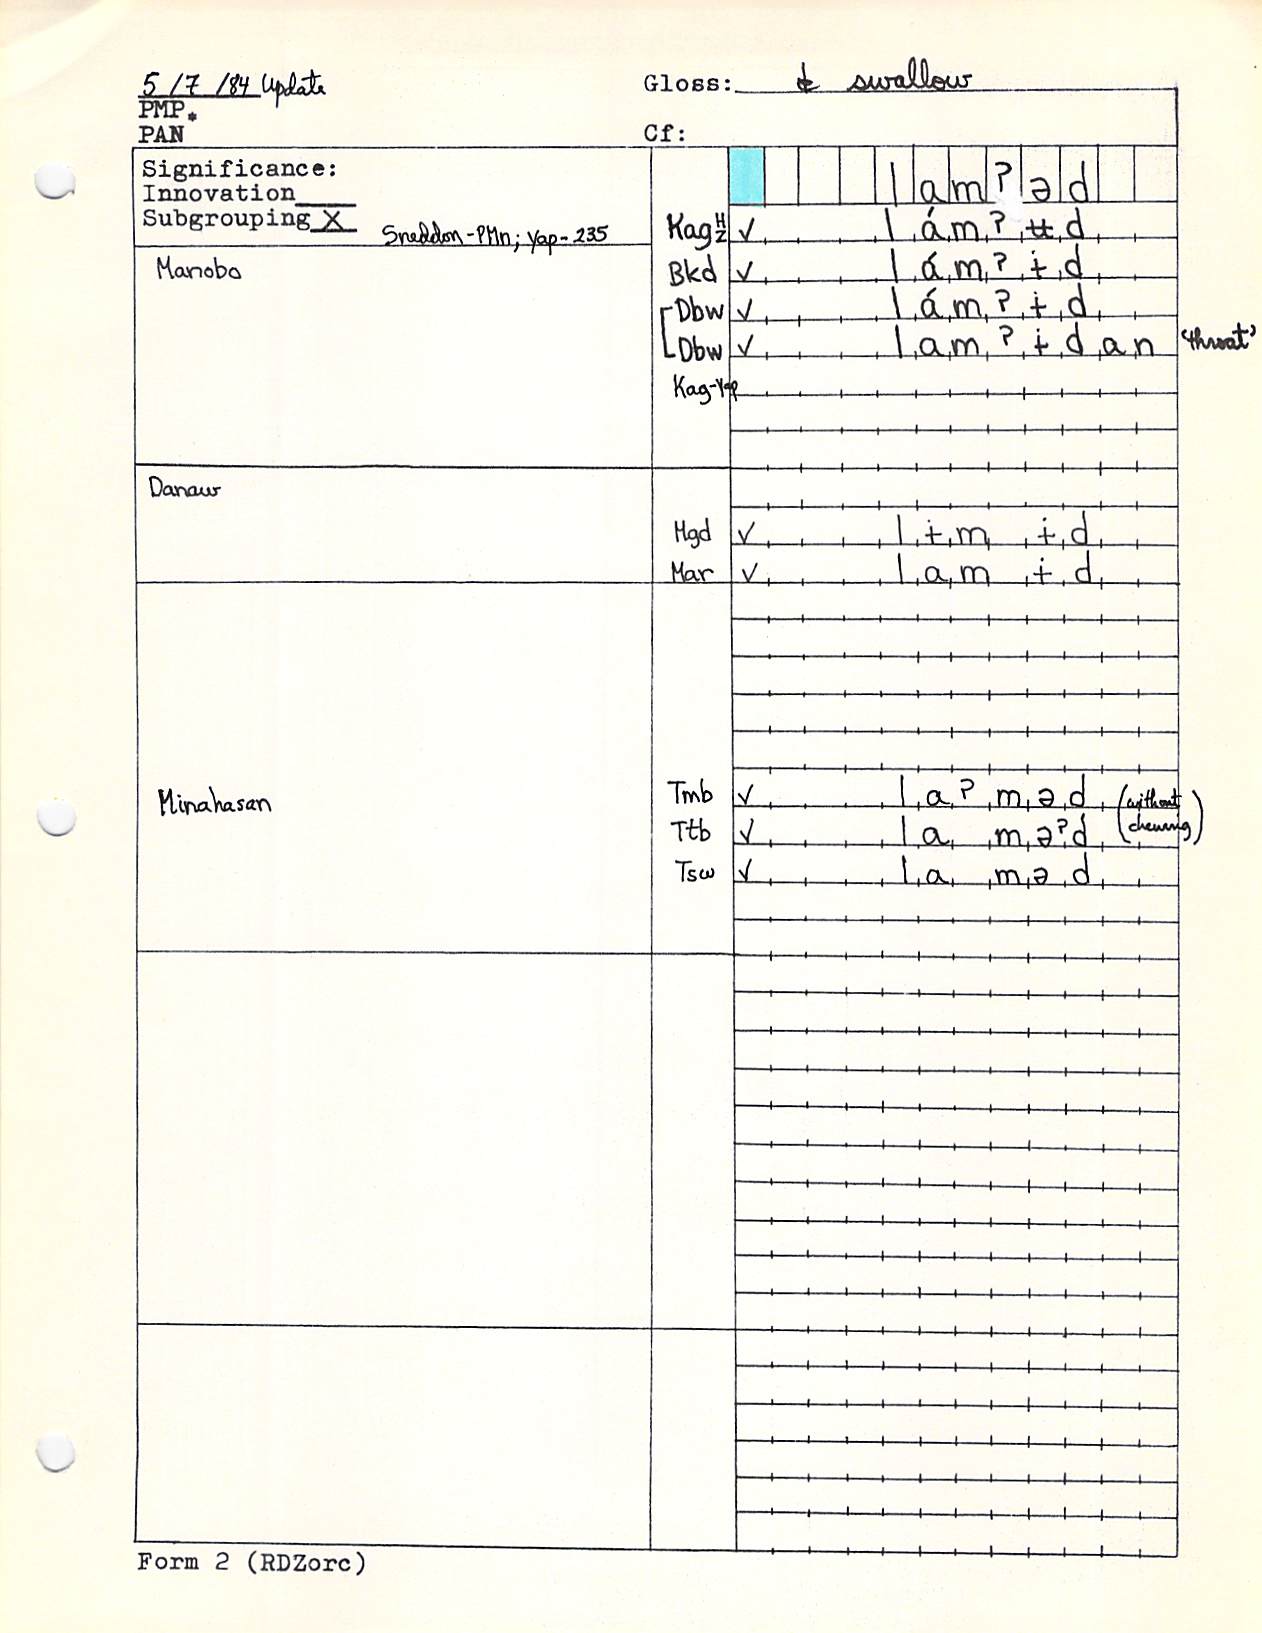 5/7/84 Update
Gloss: to swallow
PMP*
PAN
Cf:
Significance:
Innovation____
Subgrouping X
Sneddon-PMn; Yap-235
lamʔəd
Kag H Z ✓ lámʔʉd
Manobo
Bkd ✓ lámʔɨd
Dbw ✓ lámʔɨd
Dbw ✓ lamʔɨdan 'throat'
Kag-Yap
Danaw
Mgd ✓ lɨmɨd
Mar ✓ lamɨd
Minahasan
Tmb ✓ laʔməd (without chewing)
Ttb ✓ laməʔd
Tsw ✓ laməd
Form 2 (RDZorc)